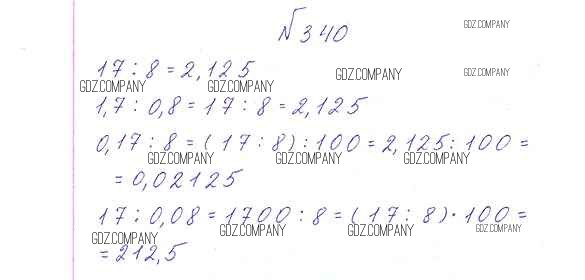 № 340
GDZ.COMPANY
17 : 8 = 2,125
GDZ.COMPANY GDZ.COMPANY
GDZ.COMPANY GDZ.COMPANY
1,7 : 0,8 = 17 : 8 = 2,125
0,17 : 8 = (17 : 8) : 100 = 2,125 : 100 =
GDZ.COMPANY GDZ.COMPANY GDZ.COMPANY
= 0,02125
17 : 0,08 = 1700 : 8 = (17 : 8) · 100 =
GDZ.COMPANY GDZ.COMPANY GDZ.COMPANY GDZ.COMPANY
= 212,5